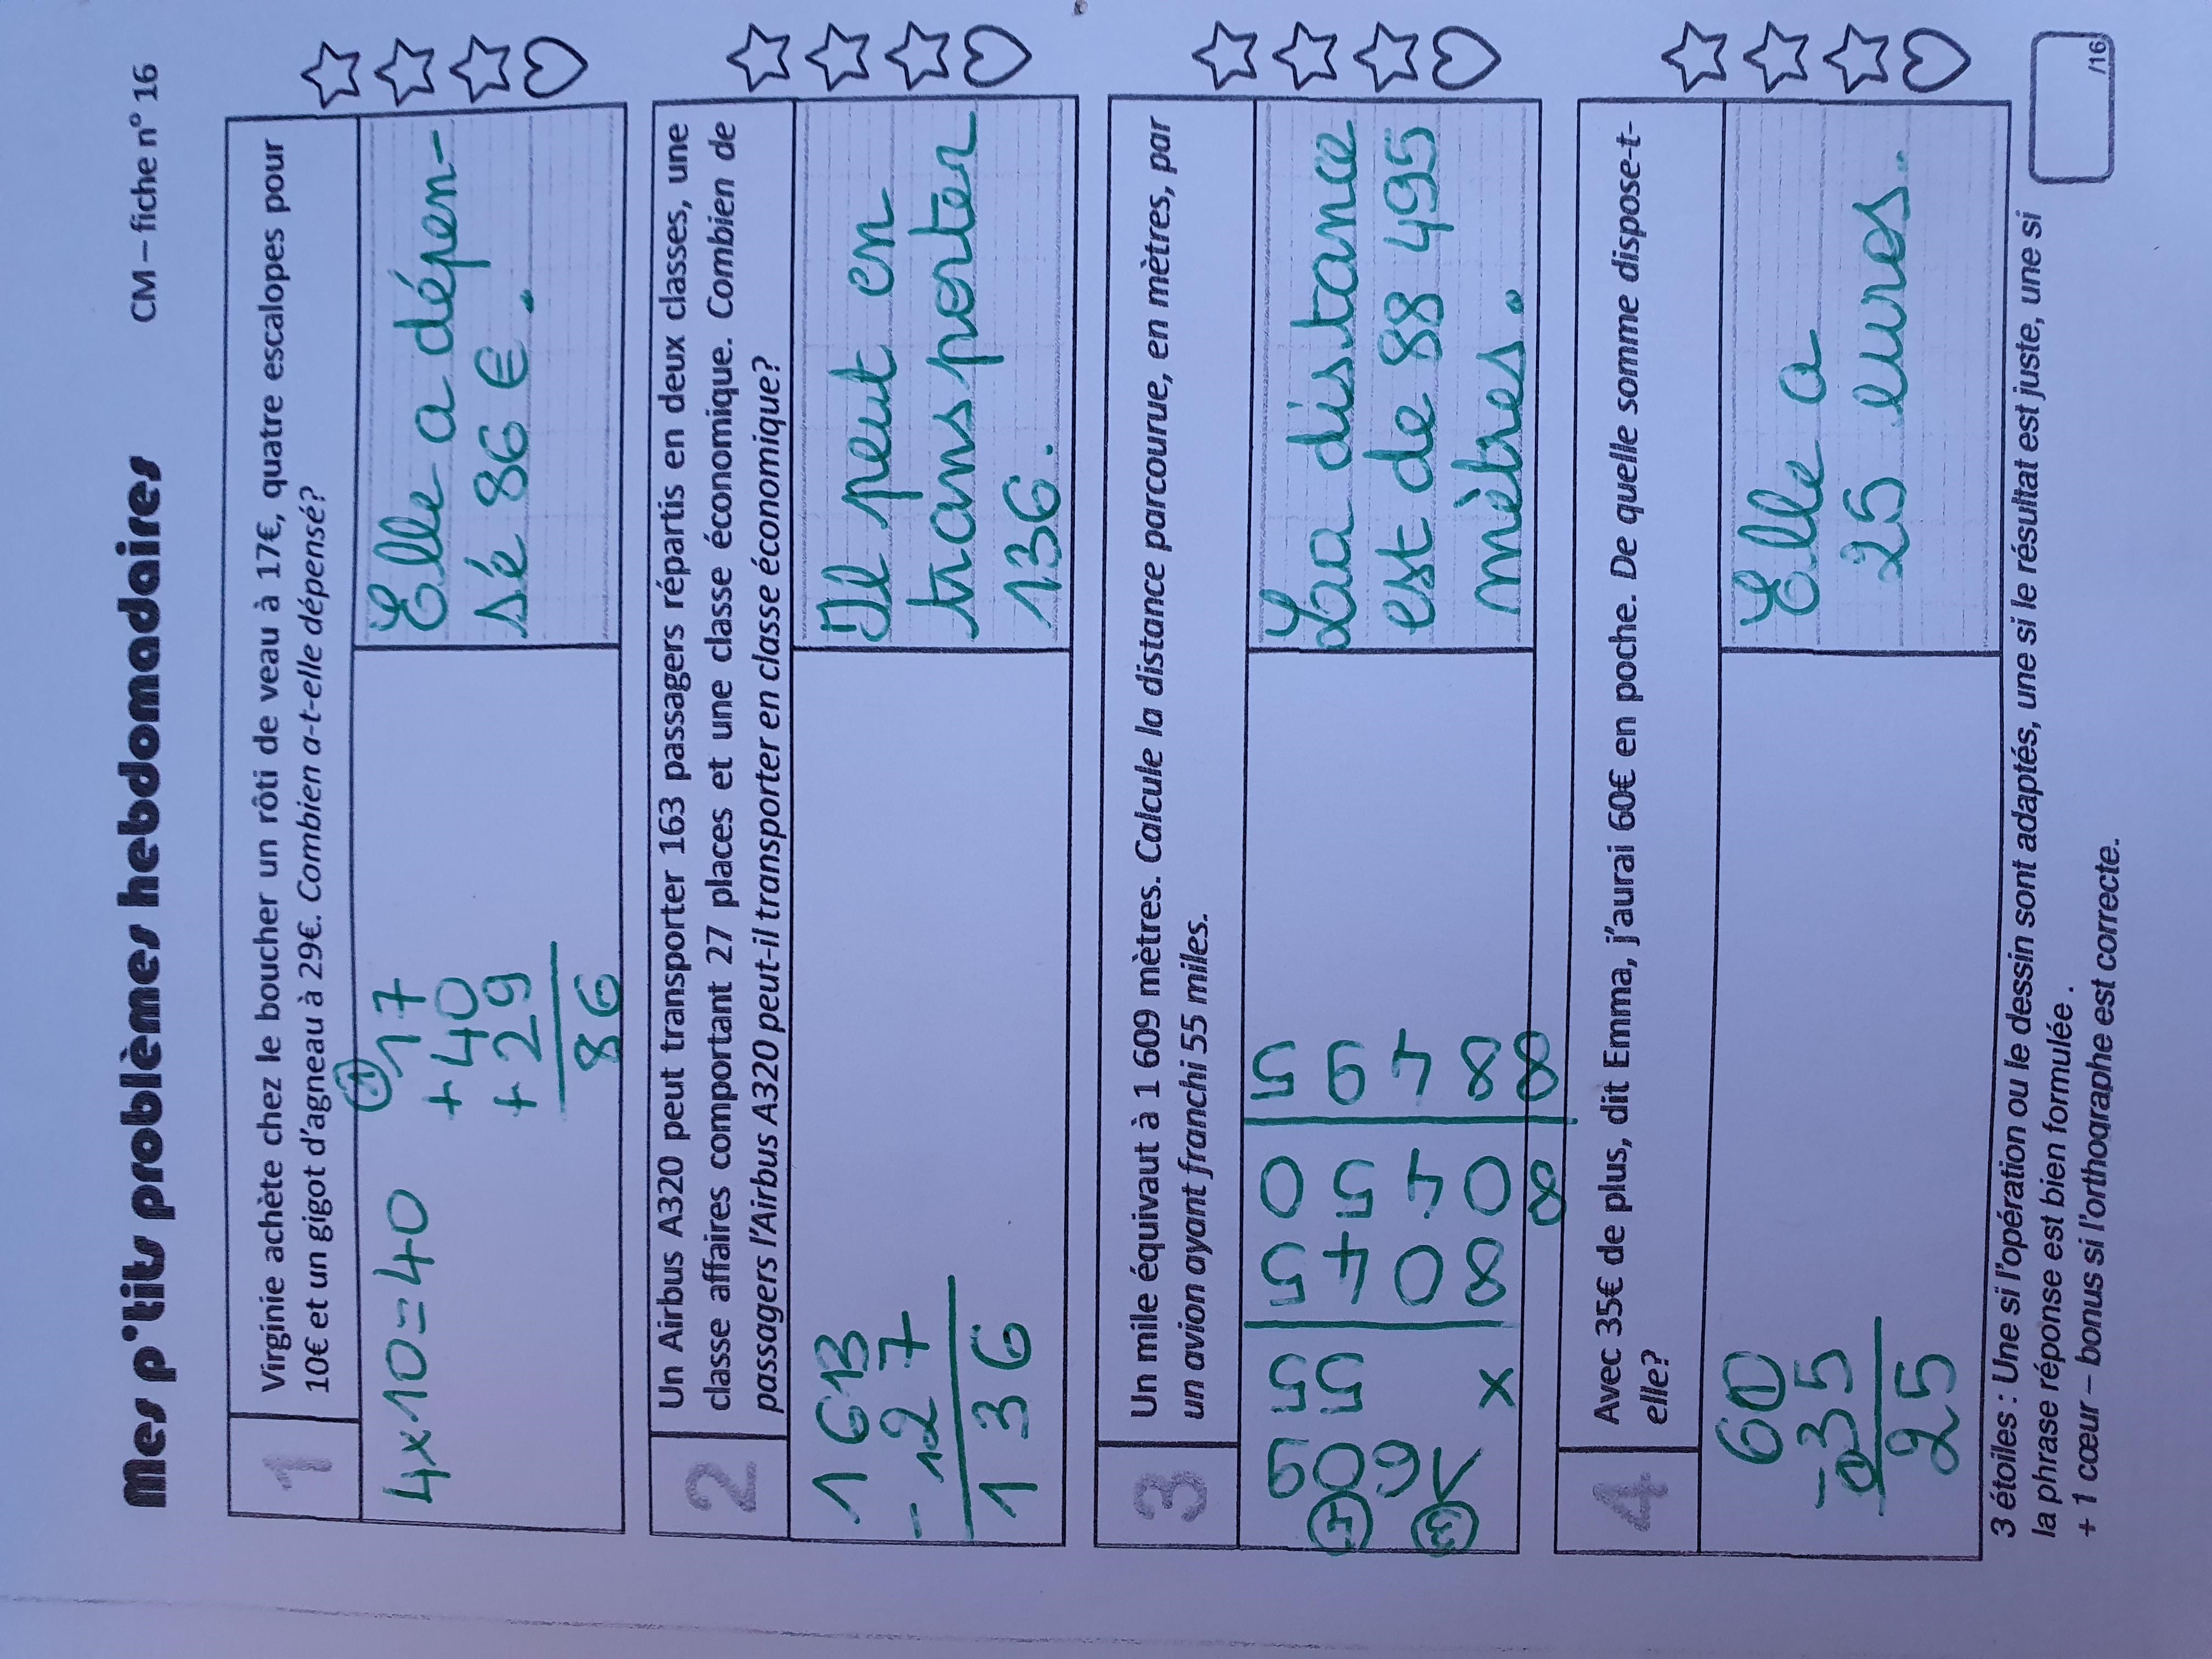 Mes p'tits problèmes hebdomadaires
CM – fiche n° 16
1
Virginie achète chez le boucher un rôti de veau à 17€, quatre escalopes pour
10€ et un gigot d'agneau à 29€. Combien a-t-elle dépensé?
4x10=40
1
17
+40
+29
86
Elle a dépen-
sé 86 €.
2
Un Airbus A320 peut transporter 163 passagers répartis en deux classes, une
classe affaires comportant 27 places et une classe économique. Combien de
passagers l'Airbus A320 peut-il transporter en classe économique?
1 6 13
- 12 7
1 3 6
Il peut en
transporter
136.
3
Un mile équivaut à 1 609 mètres. Calcule la distance parcourue, en mètres, par
un avion ayant franchi 55 miles.
x 55
8045
80450
88495
La distance
est de 88 495
mètres.
4
Avec 35€ de plus, dit Emma, j'aurai 60€ en poche. De quelle somme dispose-t-
elle?
60
-35
25
Elle a
25 eures.
3 étoiles : Une si l'opération ou le dessin sont adaptés, une si le résultat est juste, une si
la phrase réponse est bien formulée .
+ 1 cœur – bonus si l'orthographe est correcte.
/16